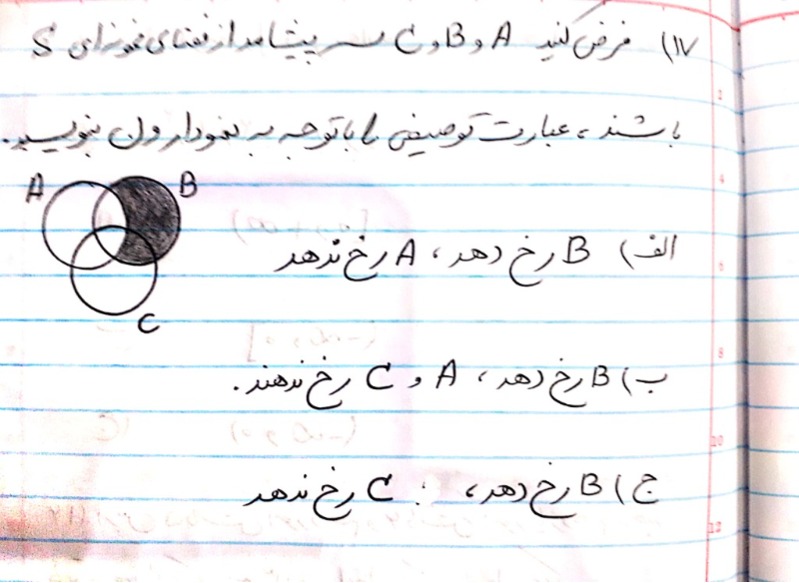 ۱۷) فرض کنید A و B و C سه پیشامد از فضای نمونه‌ای S
باشند، عبارت توصیفی را با توجه به نمودار ون بنویسید.
A B
الف) B رخ دهد، A رخ ندهد
C
ب) B رخ دهد، A و C رخ ندهند.
ج) B رخ دهد، C رخ ندهد